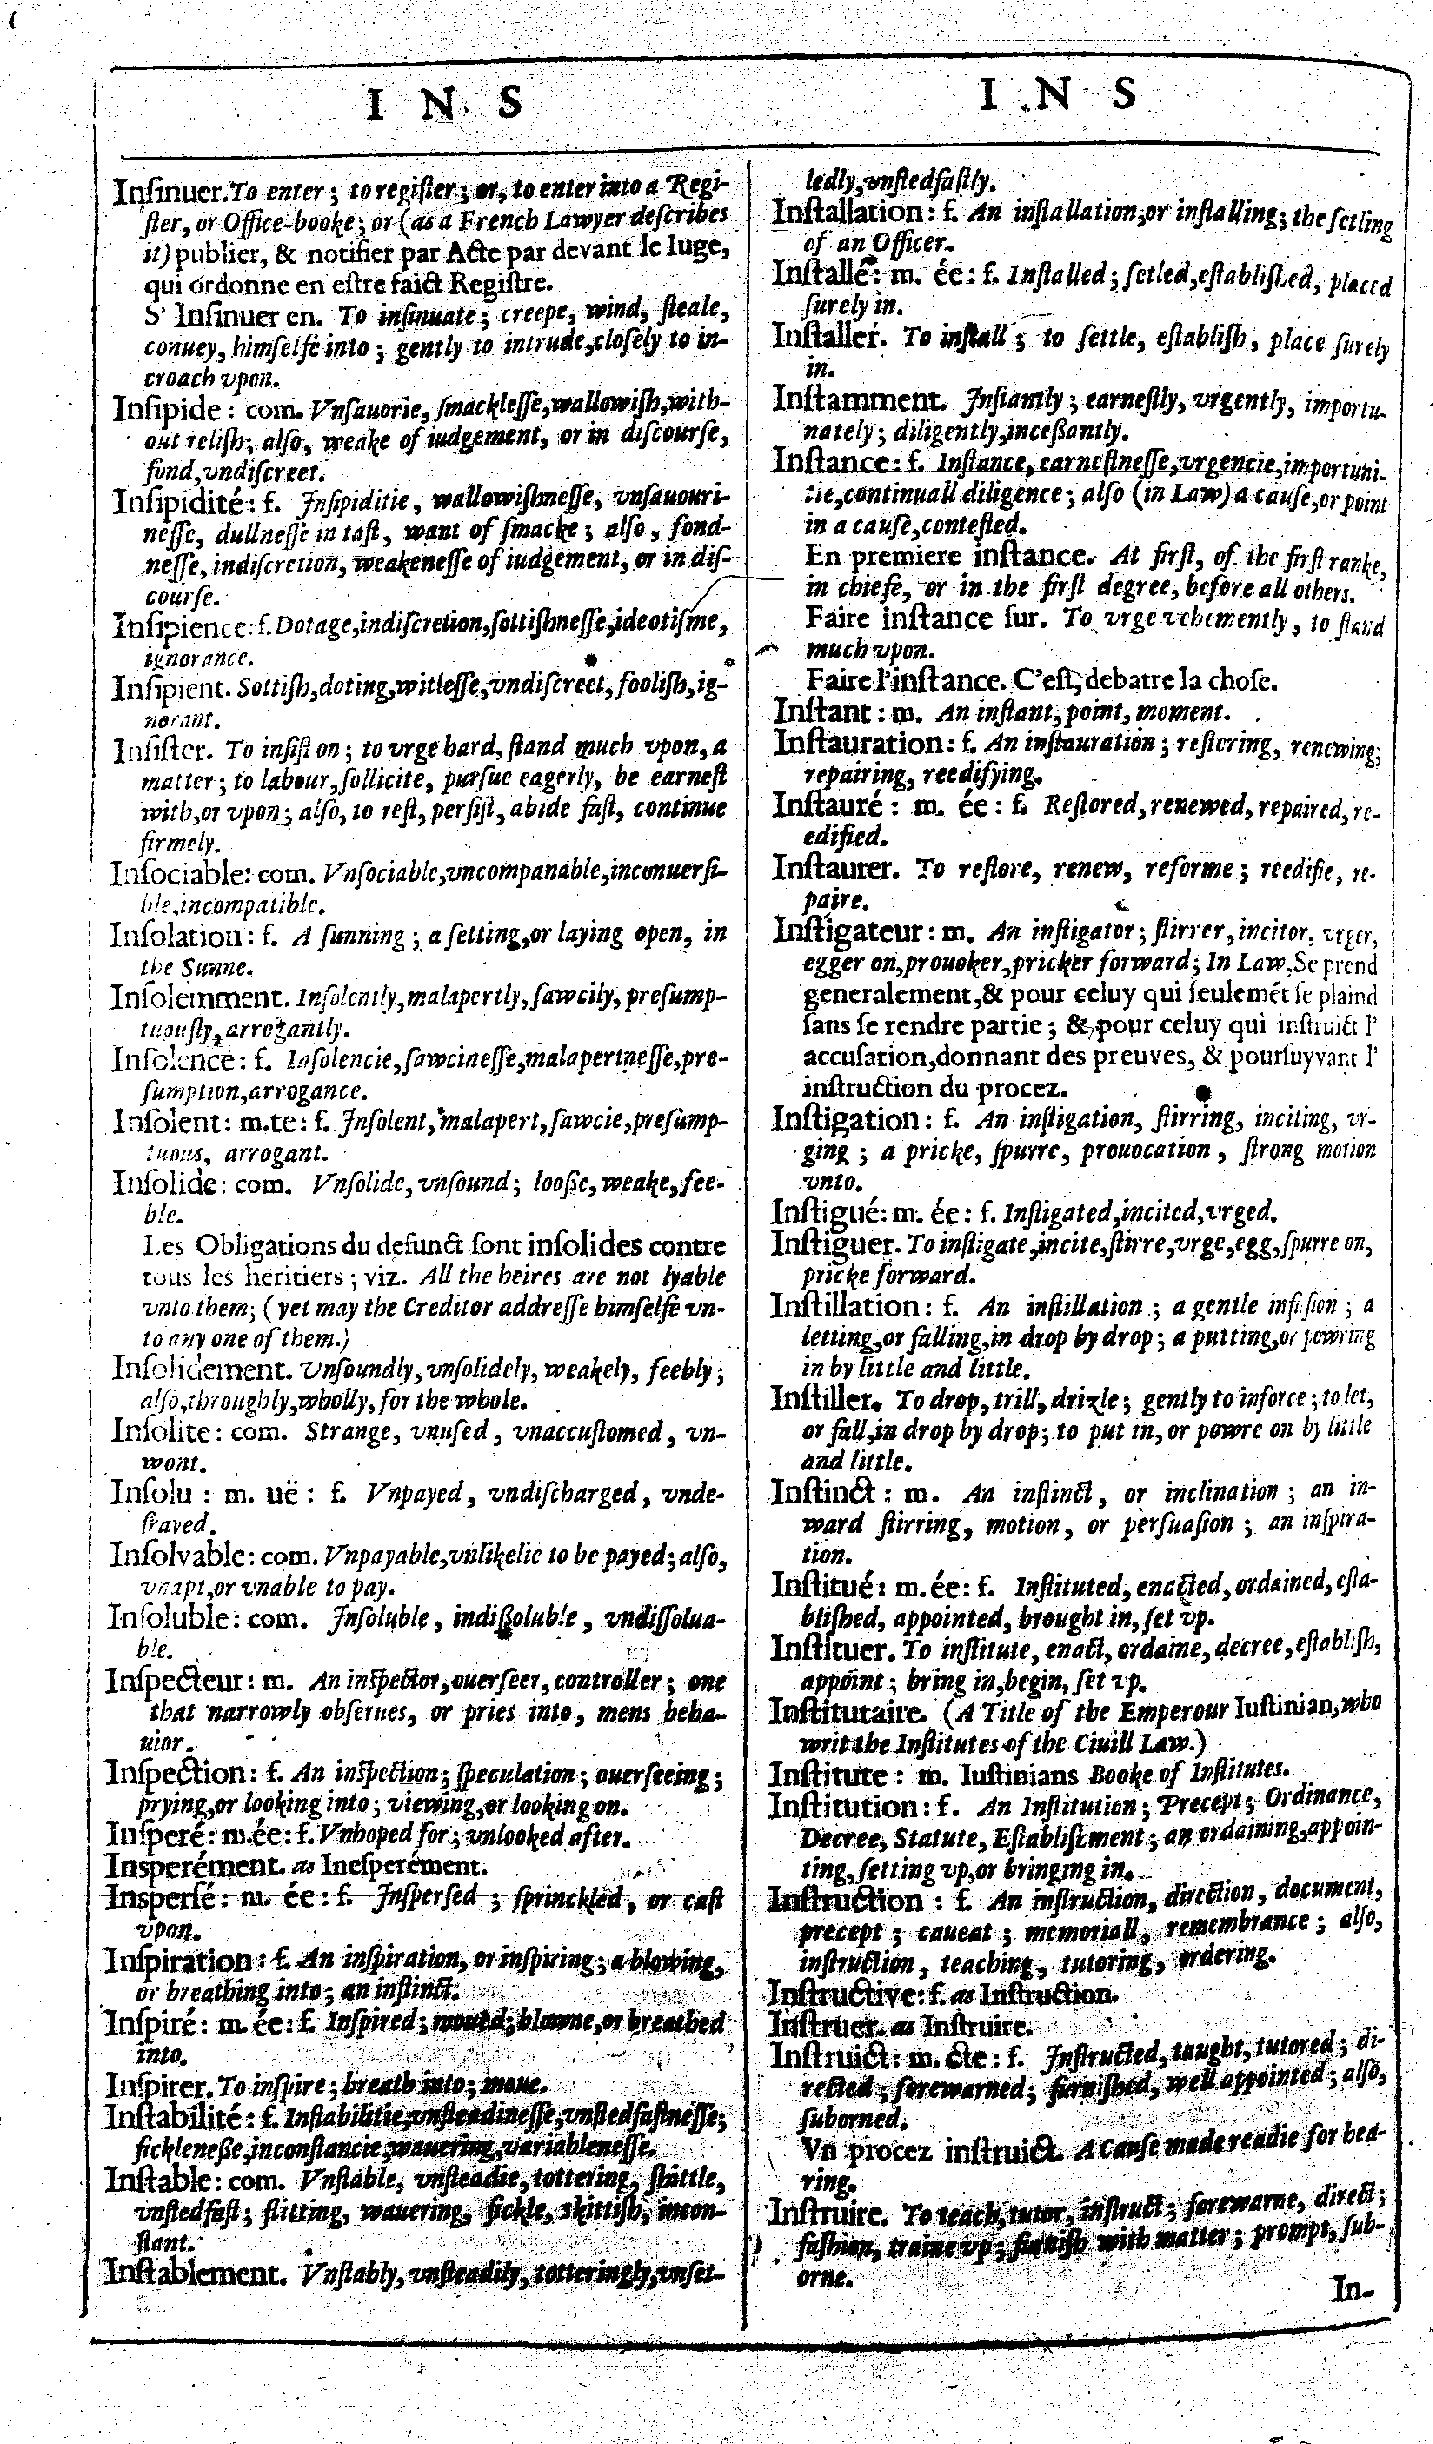 I N S
Insinuer. To enter; to register; or, to enter into a Regi-
ster, or Office-booke; or (as a French Lawyer describes
it) publier, & notifier par Acte par devant le Iuge,
qui ordonne en estre faict Registre.
S' Insinuer en. To insinuate; creepe, wind, steale,
conuey, himselfe into; gently to intrude, closely to in-
croach vpon.
Insipide: com. Vnsauorie, smacklesse, wallowish, with-
out relish; also, weake of iudgement, or in discourse,
fond, vndiscreet.
Insipidité: f. Insipiditie, wallowishnesse, vnsauouri-
nesse, dullnesse in tast, want of smacke; also, fond-
nesse, indiscretion, weakenesse of iudgement, or in dis-
course.
Insipience: f. Dotage, indiscretion, sottishnesse, ideotisme,
ignorance.
Insipient. Sottish, doting, witlesse, vndiscreet, foolish, ig-
norant.
Insister. To insist on; to vrge hard, stand much vpon, a
matter; to labour, sollicite, pursue eagerly, be earnest
with, or vpon; also, to rest, persist, abide fast, continue
firmely.
Insociable: com. Vnsociable, vncompanable, inconuersi-
ble, incompatible.
Insolation: f. A sunning; a setting, or laying open, in
the Sunne.
Insolemment. Insolently, malapertly, sawcily, presump-
tuously, arrogantly.
Insolence: f. Insolencie, sawcinesse, malapertnesse, pre-
sumption, arrogance.
Insolent: m. te: f. Insolent, malapert, sawcie, presump-
tuous, arrogant.
Insolide: com. Vnsolide, vnsound; loose, weake, fee-
ble.
Les Obligations du defunct sont insolides contre
tous les heritiers; viz. All the heires are not lyable
vnto them; (yet may the Creditor addresse himselfe vn-
to any one of them.)
Insolidement. Vnsoundly, vnsolidely, weakely, feebly;
also, throughly, wholly, for the whole.
Insolite: com. Strange, vnused, vnaccustomed, vn-
wont.
Insolu: m. uë: f. Vnpayed, vndischarged, vnde-
frayed.
Insolvable: com. Vnpayable, vnlikelie to be payed; also,
vnapt, or vnable to pay.
Insoluble: com. Insoluble, indissoluble, vndissolua-
ble.
Inspecteur: m. An inspector, ouerseer, controller; one
that narrowly obserues, or pries into, mens beha-
uior.
Inspection: f. An inspection; speculation; ouerseeing;
prying, or looking into; viewing, or looking on.
Insperé: m. ée: f. Vnhoped for; vnlooked after.
Insperément. as Inesperément.
Inspersé: m. ée: f. Inspersed; sprinckled, or cast
vpon.
Inspiration: f. An inspiration, or inspiring; a blowing,
or breathing into; an instinct.
Inspiré: m. ée: f. Inspired; moued; blowne, or breathed
into.
Inspirer. To inspire; breath into; moue.
Instabilité: f. Instabilitie, vnsteadinesse, vnstedfastnesse;
ficklenesse, inconstancie, wauering, variablenesse.
Instable: com. Vnstable, vnsteadie, tottering, shittle,
vnstedfast; flitting, wauering, fickle, skittish, incon-
stant.
Instablement. Vnstably, vnsteadily, totteringly, vnset-
I N S
ledly, vnstedfastly.
Installation: f. An installation, or installing; the setling
of an Officer.
Installé: m. ée: f. Installed; setled, established, placed
surely in.
Installer. To install; to settle, establish, place surely
in.
Instamment. Instantly; earnestly, vrgently, importu-
nately; diligently, incessantly.
Instance: f. Instance, earnestnesse, vrgencie, importuni-
tie, continuall diligence; also (in Law) a cause, or point
in a cause, contested.
En premiere instance. At first, of the first ranke,
in chiefe, or in the first degree, before all others.
Faire instance sur. To vrge vehemently, to stand
much vpon.
Faire l'instance. C'est, debatre la chose.
Instant: m. An instant, point, moment.
Instauration: f. An instauration; restoring, renewing;
repairing, reedifying.
Instauré: m. ée: f. Restored, renewed, repaired, re-
edified.
Instaurer. To restore, renew, reforme; reedifie, re-
paire.
Instigateur: m. An instigator; stirrer, incitor, vrger,
egger on, prouoker, pricker forward; In Law, Se prend
generalement, & pour celuy qui seulemét se plaind
sans se rendre partie; & pour celuy qui instruict l'
accusation, donnant des preuves, & poursuyvant l'
instruction du procez.
Instigation: f. An instigation, stirring, inciting, vr-
ging; a pricke, spurre, prouocation, strong motion
vnto.
Instigué: m. ée: f. Instigated, incited, vrged.
Instiguer. To instigate, incite, stirre, vrge, egg, spurre on,
pricke forward.
Instillation: f. An instillation; a gentle infusion; a
letting, or falling, in drop by drop; a putting, or powring
in by little and little.
Instiller. To drop, trill, drizle; gently to inforce; to let,
or fall, in drop by drop; to put in, or powre on by little
and little.
Instinct: m. An instinct, or inclination; an in-
ward stirring, motion, or persuasion; an inspira-
tion.
Institué: m. ée: f. Instituted, enacted, ordained, esta-
blished, appointed, brought in, set vp.
Instituer. To institute, enact, ordaine, decree, establish,
appoint; bring in, begin, set vp.
Institutaire. (A Title of the Emperour Iustinian, who
writ the Institutes of the Ciuill Law.)
Institute: m. Iustinians Booke of Institutes.
Institution: f. An Institution; Precept; Ordinance,
Decree, Statute, Establishment; an ordaining, appoin-
ting, setting vp, or bringing in.
Instruction: f. An instruction, direction, document,
precept; caueat; memoriall, remembrance; also,
instruction, teaching, tutoring, ordering.
Instructive: f. as Instruction.
Instruer. as Instruire.
Instruict: m. cte: f. Instructed, taught, tutored; di-
rected; forewarned; furnished, well appointed; also,
suborned.
Vn procez instruict. A Cause made readie for hea-
ring.
Instruire. To teach, tutor, instruct; forewarne, direct;
fashion, traine vp; furnish with matter; prompt, sub-
orne.
In-